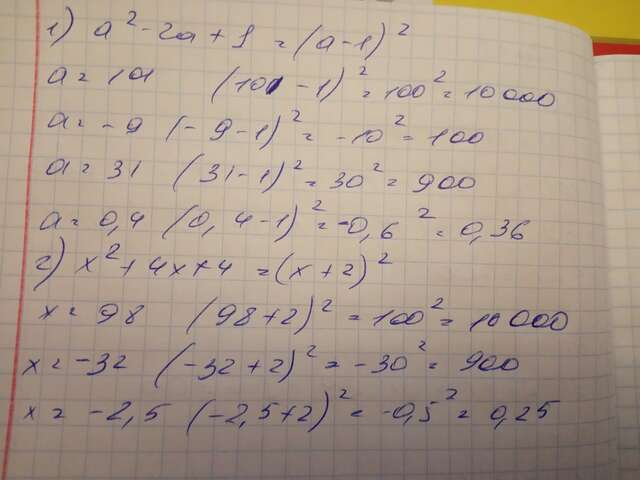 1) a² - 2a + 1 = (a - 1)²
a = 101 (101 - 1)² = 100² = 10 000
a = -9 (- 9 - 1)² = -10² = 100
a = 31 (31 - 1)² = 30² = 900
a = 0,4 (0,4 - 1)² = -0,6² = 0,36
2) x² + 4x + 4 = (x + 2)²
x = 98 (98 + 2)² = 100² = 10 000
x = -32 (-32 + 2)² = -30² = 900
x = -2,5 (-2,5 + 2)² = -0,5² = 0,25